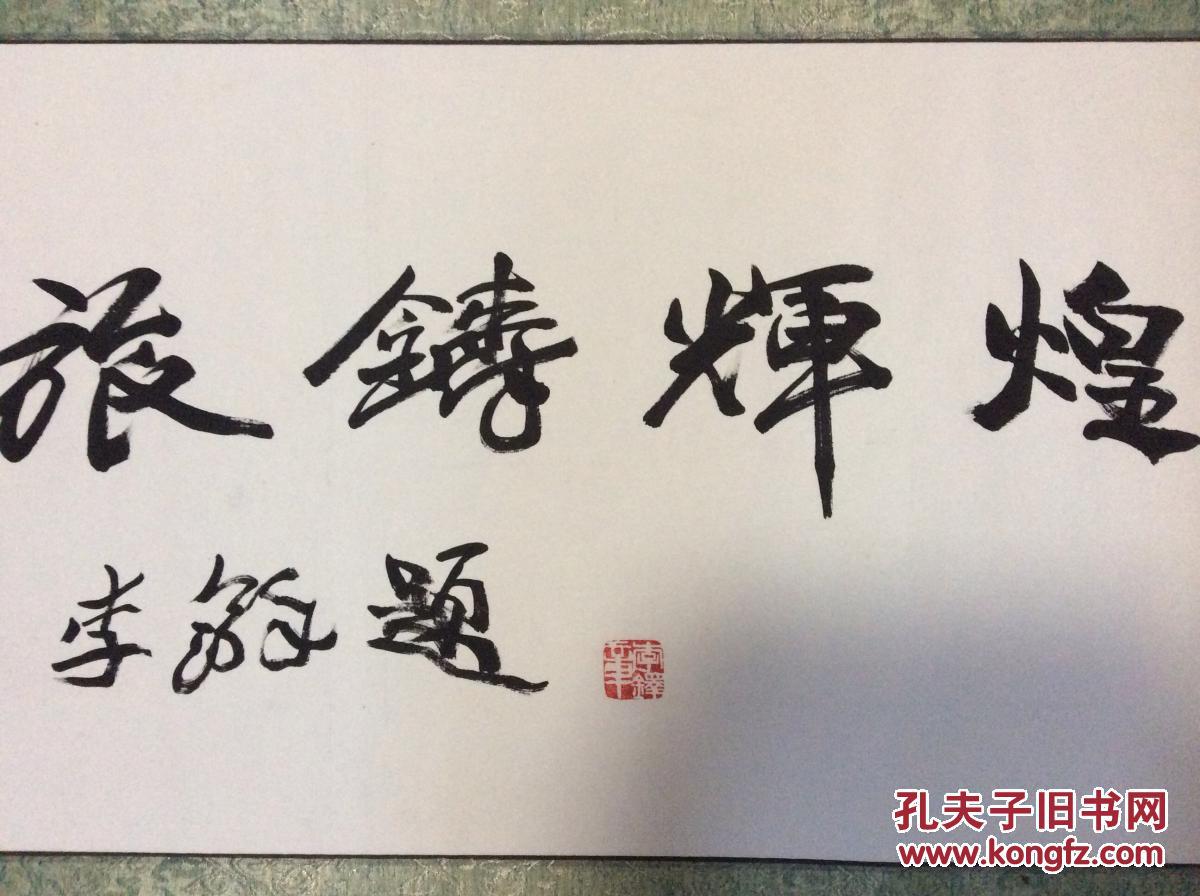 旅鑄輝煌
李鐸題
李鐸
孔夫子旧书网
www.kongfz.com